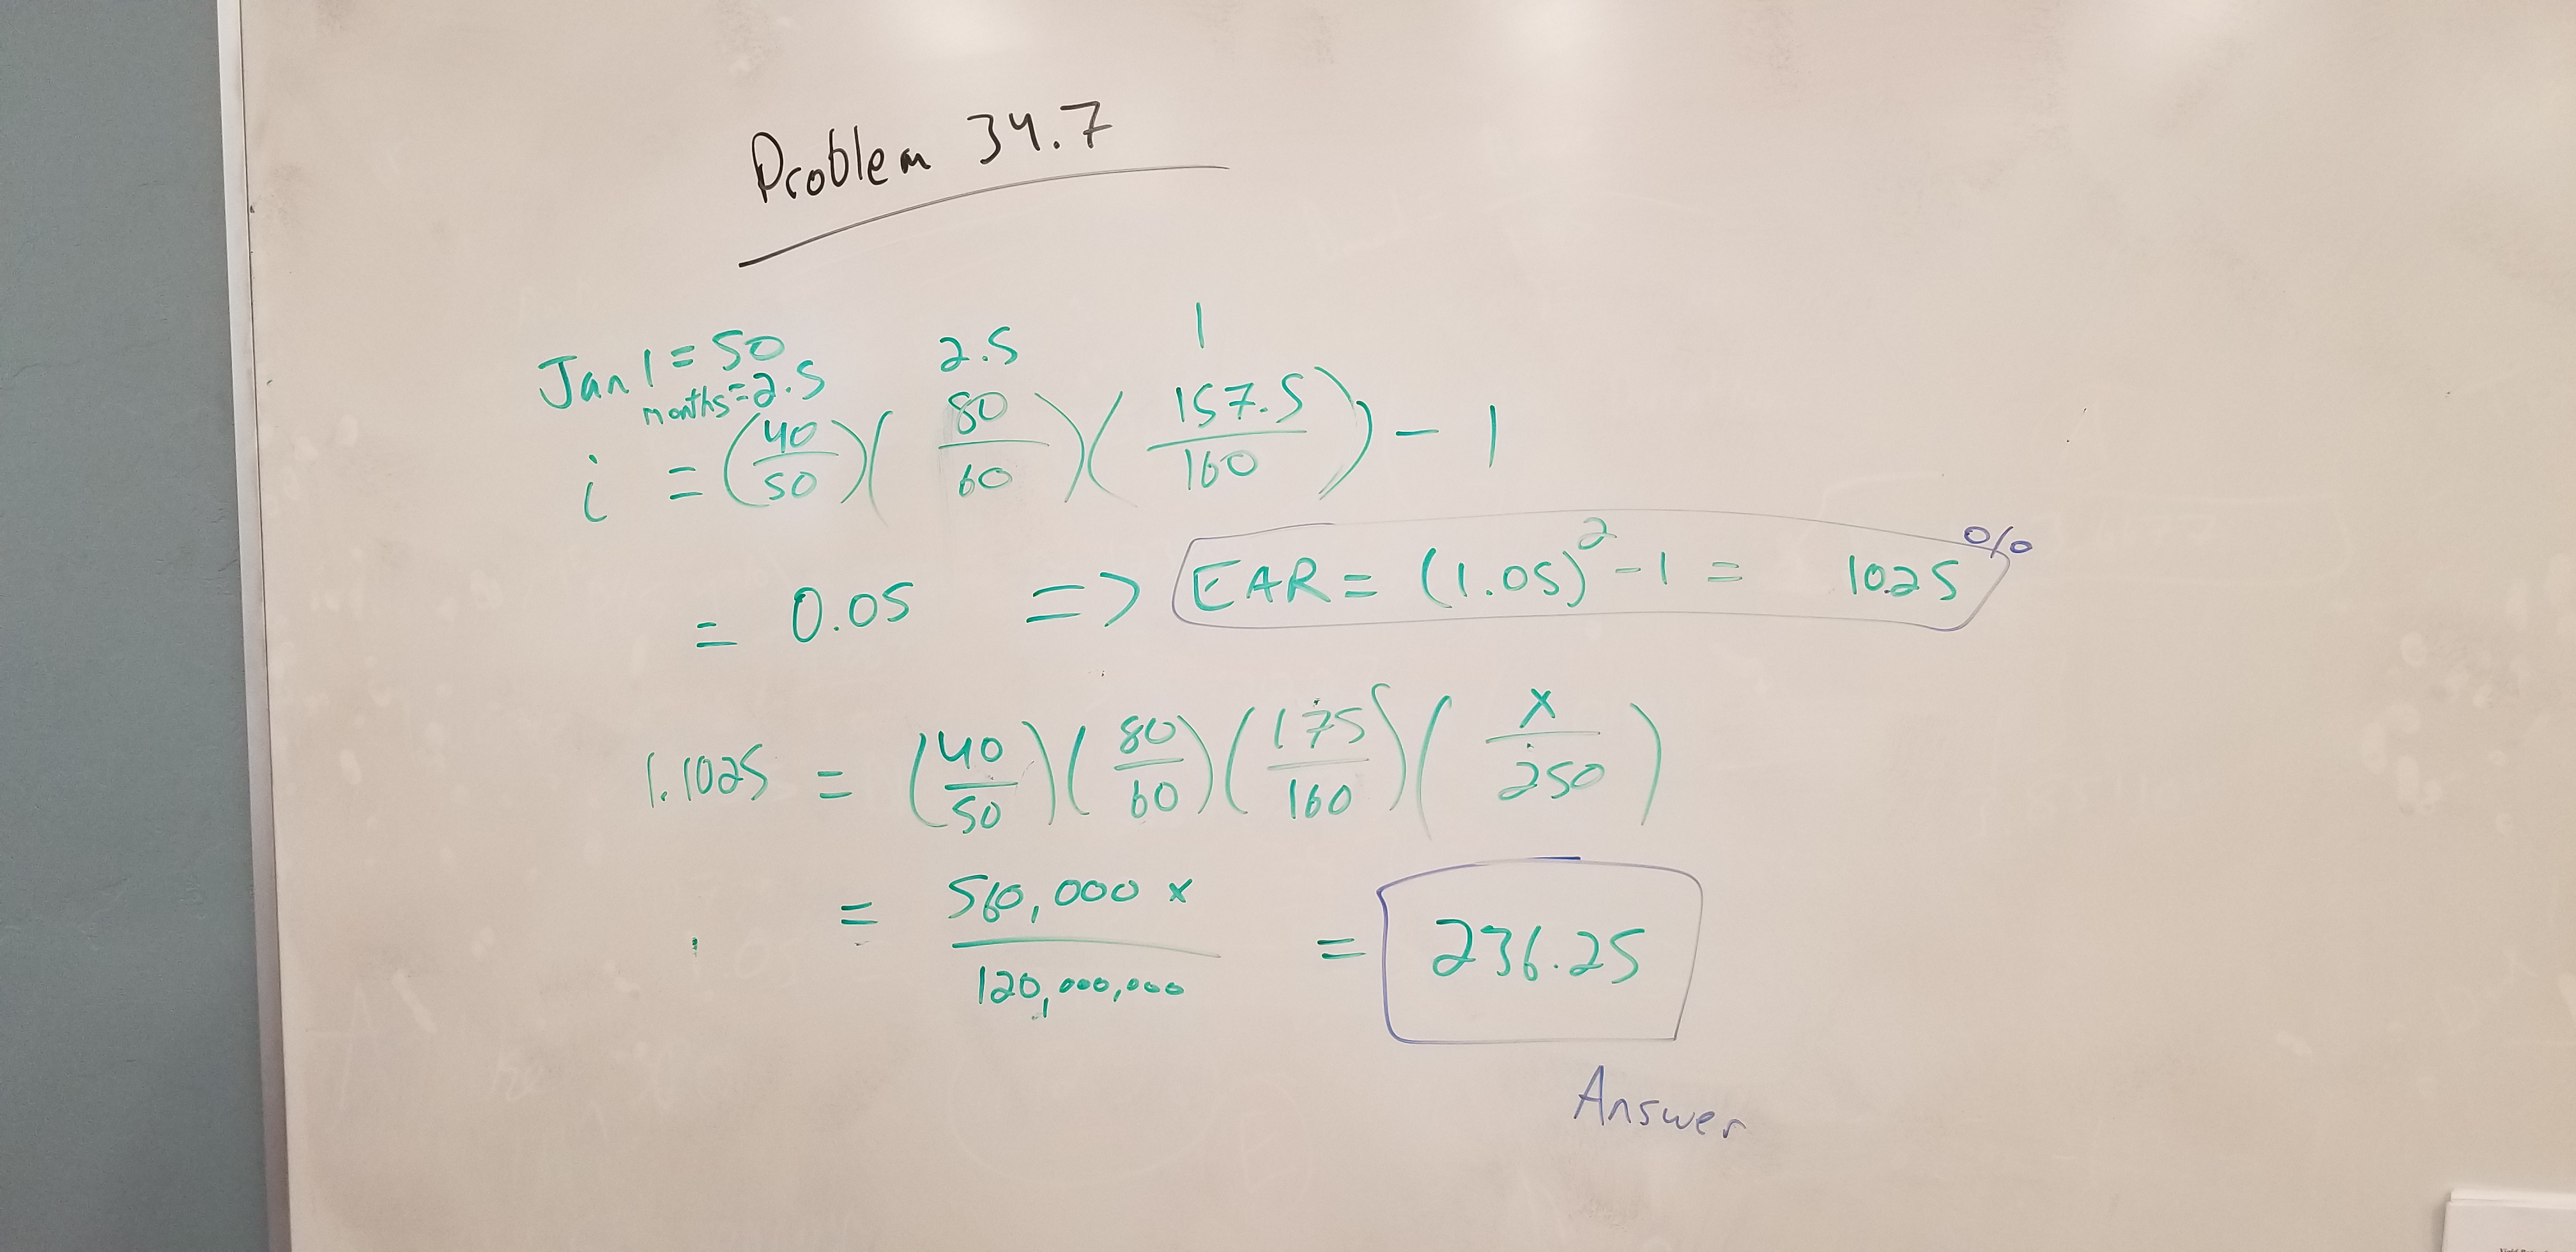 Problem 34.7
Jan 1 = 50
months = 2.5 2.5 1
i = (40/50)(80/60)(157.5/160) - 1
= 0.05 => EAR = (1.05)^2 - 1 = 10.25%
1.1025 = (40/50)(80/60)(175/160)(x/250)
= 560,000 x / 120,000,000 = 236.25
Answer